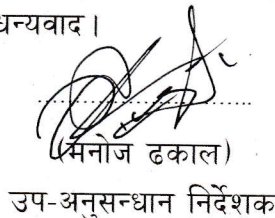 धन्यवाद।
(मनोज ढकाल)
उप-अनुसन्धान निर्देशक